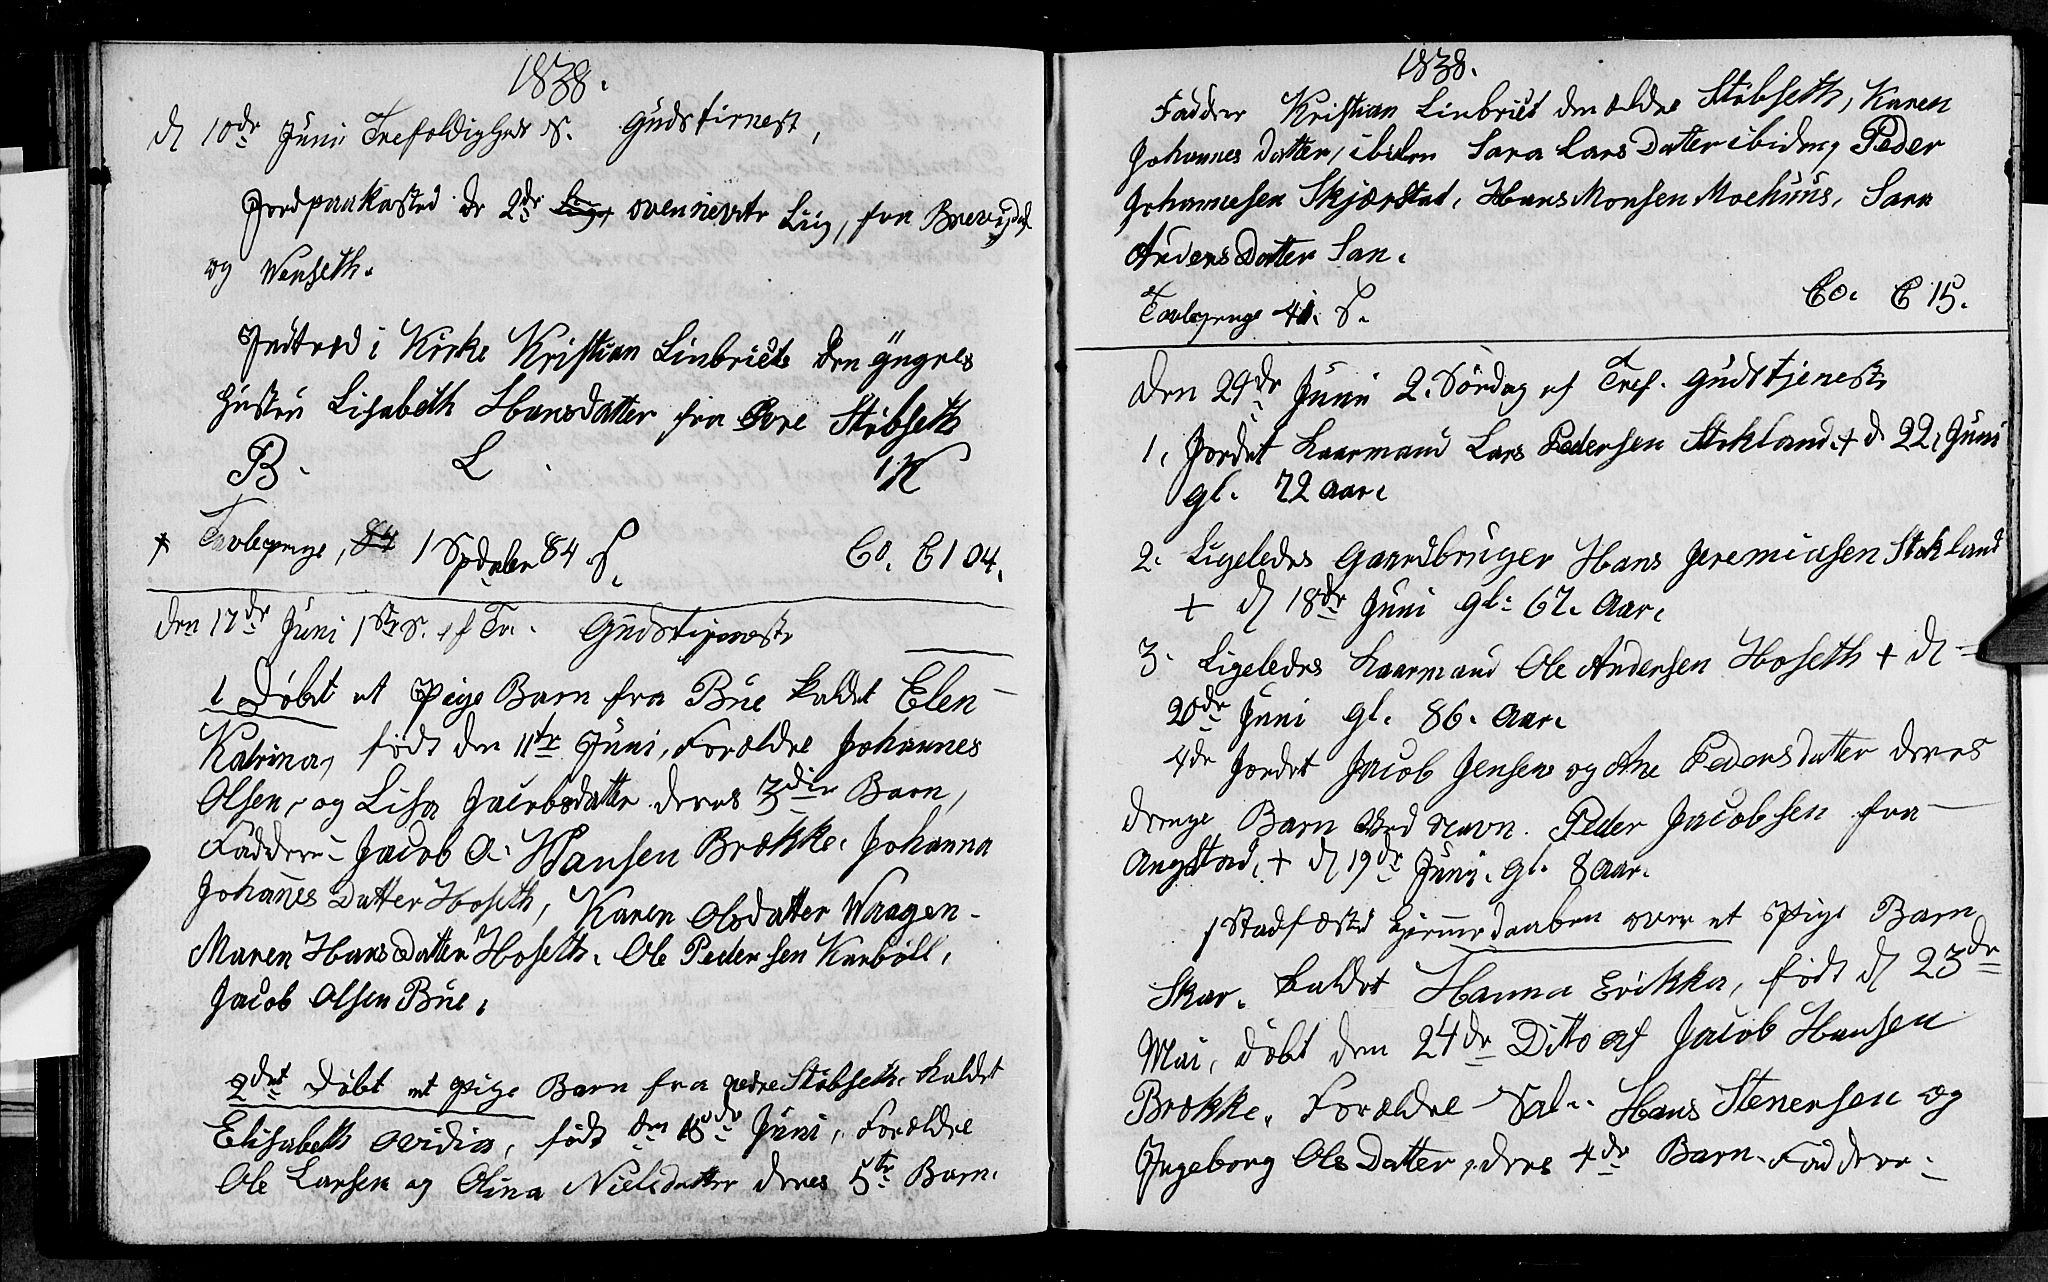 1838.
d 10de Juni Trefoldigheds S. Gudstienest,
Jordpaakasted de 2de Liig, ovennevnte Liig, fra Brevigdal
og Wenseth.
Indtræd i Kirke Kristian Linbriets den yngres
Hustru Lisabeth Hansdatter fra Øvre Stibseth
B. L. 1 K
Tavlepenge, 84 1 Spdaler 84 S. Co. C 104.
Den 17de Juni 1ste S. ef Tr. Gudstjeneste
1 Døbt et Pige Barn fra Bue kaldet Elen
Katrina, født den 11te Juni, Forældre Johannes
Olsen, og Lisa Jacobsdatter deres 3die Barn,
Faddere: Jacob A. Hansen Brække. Johanna
Johanes Datter Hoseth, Karen Olsdatter Waagen
Maren Hans Datter Hoseth. Ole Pedersen Karböll.
Jacob Olsen Bue.
2det Døbt et Pige Barn fra nedre Stibseth. kaldet
Elisabeth Ovidia, født den Juni, Forældre
Ole Larsen og Olina Nielsdatter deres 5te Barn.
1838.
Faddere Kristian Linbriet den ældre Stibseth, Karen
Johannes Datter, ibiden Sara Lars Datter ibiden, Peder
Johannesen Skjærstad, Hans Monsen Moehuus, Sara
Anders Datter San.
Tavlepenge 41. S. Co. C 15.
Den 24de Juni 2. Söndag ef Tref. Gudstjeneste
1, Jordet Kaarmand Lars Pedersen Stokland. + d. 22, Juni
gl. 72 Aar.
2. Ligeledes Gaardbruger Hans Jeremiasen Stokland
+ d 18de Juni gl. 67. Aar.
3. Ligeledes Kaarmand Ole Andersen Hoseth + d
20de Juni gl. 86. Aar.
4de Jordet Jacob Jensens og Ane Pedersdatter deres
drenge Barn ved Navn. Peder Jacobsen fra
Angstad, + d 19de Juni. gl. 8 Aar.
1 Stadfæsted Hjemmedaaben over et Pige Barn
Skar. kaldet Hanna Erikka, født d 23de
Mai, døbt den 24de Ditto af Jacob Hansen
Brække. Forældre Sal. Hans Stenersen og
Ingeborg Ols Datter, deres 4de Barn. Faddere: